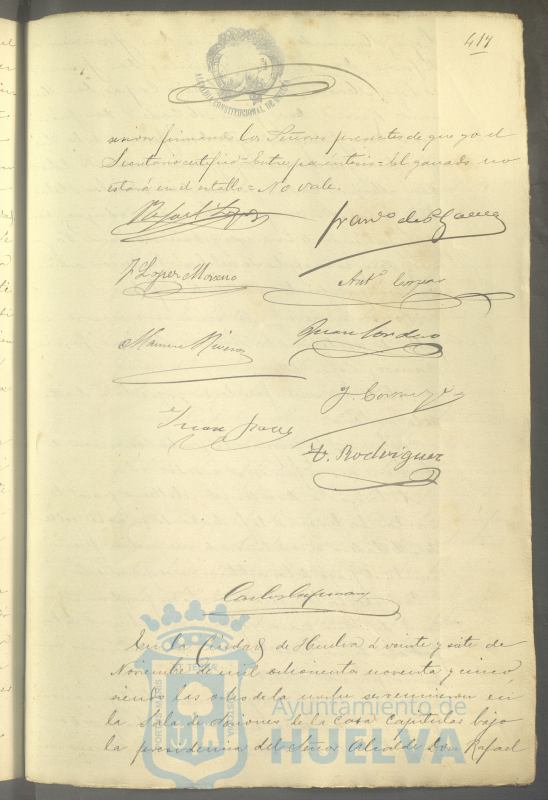 417
ALCALDIA CONSTITUCIONAL DE HUELVA
sesion firmando los Señores presentes de que yo el
Secretario certifico = Entre parentesis = El ganado no
estará en el establo = No vale.
Rafael Lopez
Franco de P.
J Lopez Moreno
Anto
Manuel Rivera
Juan Cordero
J.
Juan
D. Rodriguez
Carlos
En la Ciudad de Huelva á veinte y siete de
Noviembre de mil ochocientos noventa y cinco
siendo las ocho de la noche se reunieron en
la Sala de Sesiones de la Casa Capitular bajo
la presidencia del Señor Alcalde Don Rafael
PORTUS MARIS ET TERRAE CUSTODIA
Ayuntamiento de
HUELVA